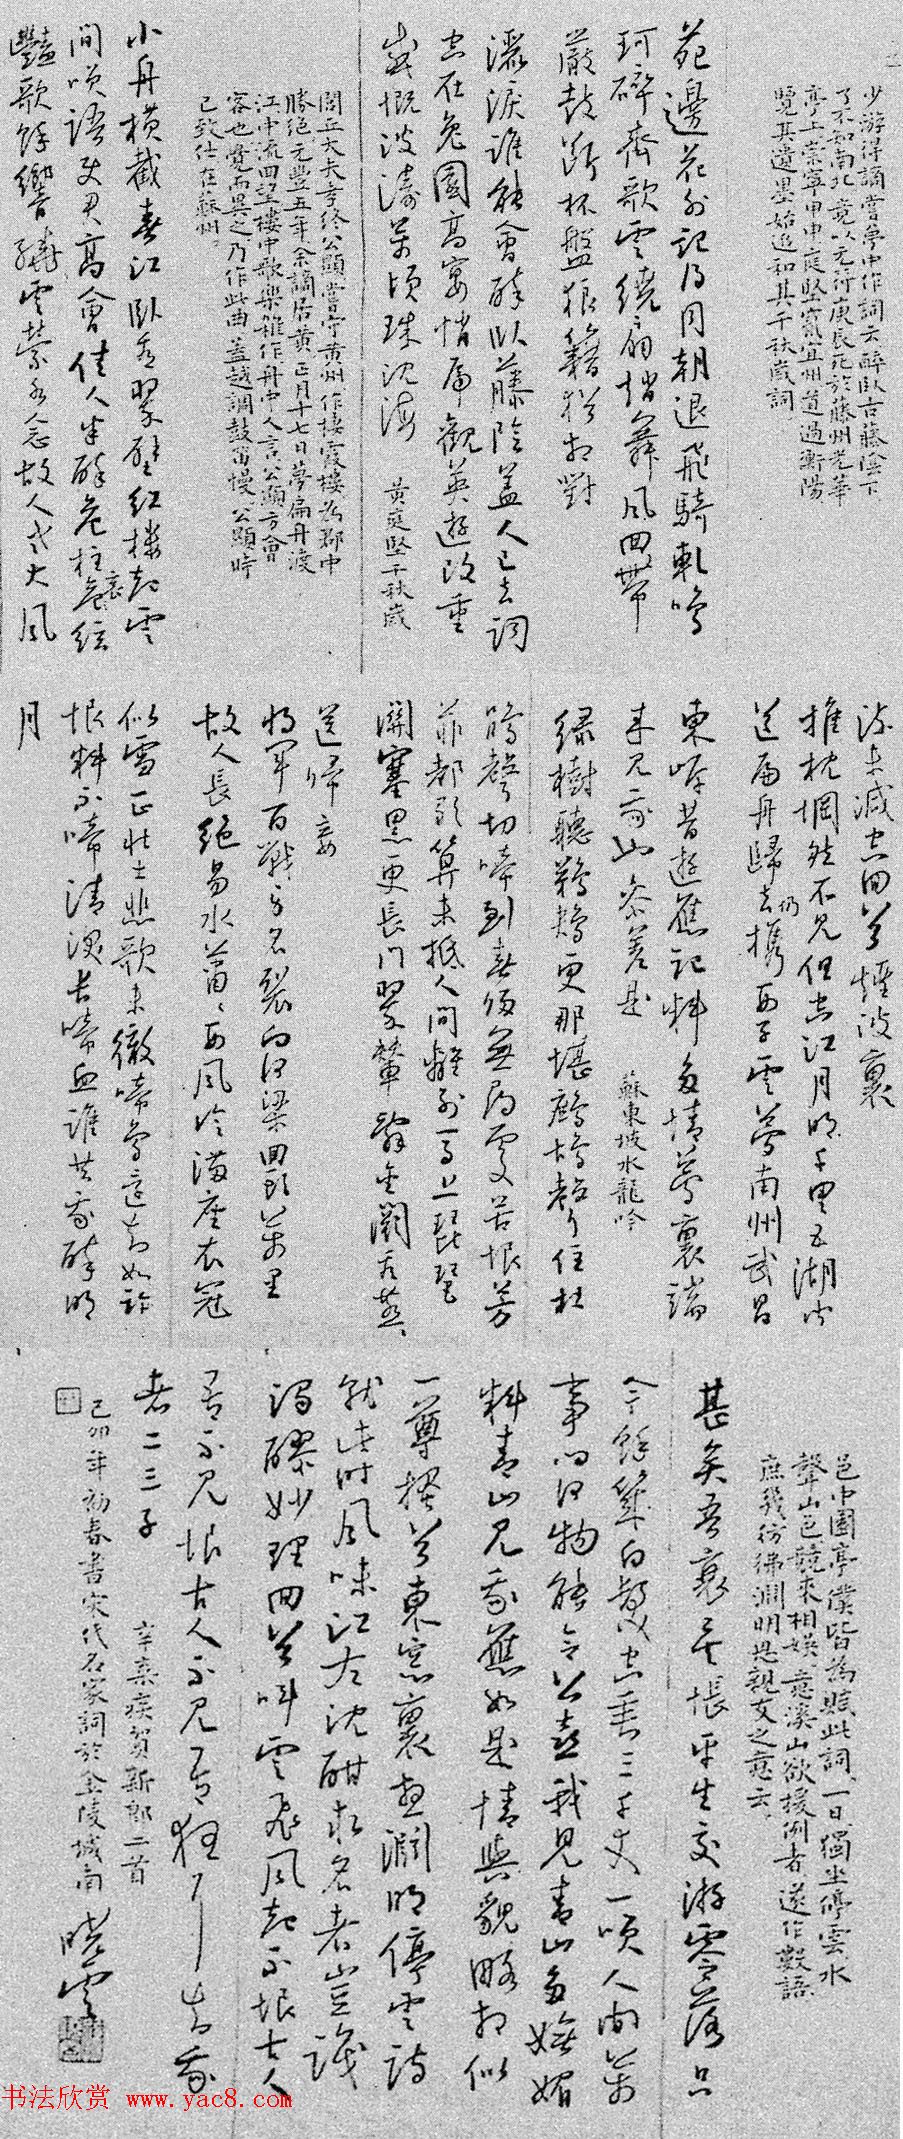 少游得謫嘗夢中作詞云醉臥古藤陰下
了不知南北竟以元符庚辰死於藤州光華
亭上崇寧甲申庭堅竄宜州道過衡陽
覽其遺墨始追和其千秋歲詞
苑邊花外記得同朝退飛騎軋鳴
珂碎齊歌雲繞扇趙舞風回帶
嚴鼓斷杯盤狼籍猶相對
灑淚誰能會醉臥藤陰蓋人已去詞
空在兔園高宴悄虎觀英遊改重
感慨波濤萬頃珠沈海
黃庭堅千秋歲
閭丘大夫孝終公顯嘗守黃州作棲霞樓為郡中
勝絕元豐五年余謫居黃正月十七日夢扁舟渡
江中流回望樓中歌樂雜作舟中人言公顯方會
客也覺而異之乃作此曲蓋越調鼓笛慢公顯時
已致仕在蘇州
小舟橫截春江臥看翠壁紅樓起雲
間笑語使君高會佳人半醉危柱哀絃
豔歌餘響繞雲縈水念故人老大風
流未減空回首煙波裏
推枕惘然不見但空江月明千里五湖聞
道扁舟歸去仍攜西子雲夢南州武昌
東岸昔遊應記料多情夢裏端
來見我山參差是
蘇東坡水龍吟
綠樹聽鵜鴂更那堪鷓鴣聲住杜
鵑聲切啼到春歸無尋處苦恨芳
菲都歇算未抵人間離別馬上琵琶
關塞黑更長門翠輦辭金闕看燕燕
送歸妾
將軍百戰身名裂向河梁回頭萬里
故人長絕易水蕭蕭西風冷滿座衣冠
似雪正壯士悲歌未徹啼鳥還知如許
恨料不啼清淚長啼血誰共我醉明
月
邑中園亭僕皆為賦此詞一日獨坐停雲水
聲山色競來相娛意溪山欲援例者遂作數語
庶幾彷彿淵明思親友之意云
甚矣吾衰矣悵平生交游零落只
今餘幾白髮空垂三千丈一笑人間萬
事問何物能令公喜我見青山多嫵媚
料青山見我應如是情與貌略相似
一尊搔首東窗裏想淵明停雲詩
就此時風味江左沈酣求名者豈識
濁醪妙理回首叫雲飛風起不恨古人
吾不見恨古人不見吾狂耳知我
者二三子
辛棄疾賀新郎二首
己卯年初春書宋代名家詞於金陵城南
曉雲
书法欣赏 www.yac8.com